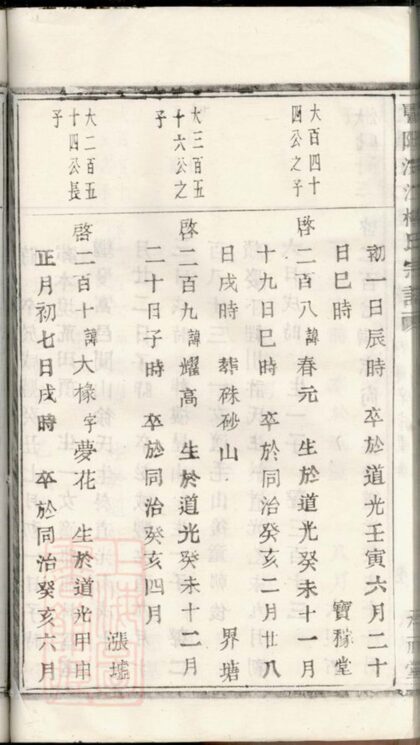 初一日辰時 卒於道光壬寅六月二十
日巳時 寶稼堂
大百四十
四公之子
啓二百八諱春元 生於道光癸未十一月
十九日巳時 卒於同治癸亥二月廿八
日戌時 葬硃砂山 界塘
大三百五
十六公之
子
啓二百九諱耀高 生於道光癸未十二月
二十日子時 卒於同治癸亥四月
漲墟
大二百五
十四公長
子
啓二百十諱大椽字夢花 生於道光甲申
正月初七日戌時 卒於同治癸亥六月